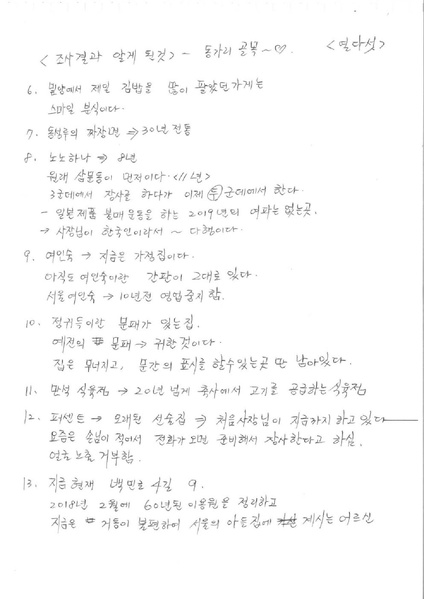 <조사결과 알게 된것> - 동가리 골목~♡. <열다섯>
6. 밀양에서 제일 김밥을 많이 팔았던가게는
스마일 분식이다.
7. 동성루의 짜장면 ⇒ 30년 전통
8. 노노하나 ⇒ 8년
원래 삼문동이 먼저이다. <11년>
3군데에서 장사를 하다가 이제 두군데에서 한다.
- 일본제품 불매운동을 하는 2019년의 여파는 없는곳.
→ 사장님이 한국인이라서 ~ 다행이다.
9. 여인숙 → 지금은 가정집이다.
아직도 여인숙이란 간판이 그대로 있다.
서울여인숙 → 10년전 영업중지함.
10. 정귀등이란 문패가 있는집.
예전의 문패 → 귀한것이다.
집은 무너지고, 문간의 표시를 할수있는곳 만 남아있다.
11. 만석 식육점 → 20년 넘게 축사에서 고기를 공급하는식육점
12. 퍼센트 → 오래된 선술집 ⇒ 처음사장님이 지금까지 하고 있다
요즘은 손님이 적어서 전화가 오면 준비해서 장사한다고 하심.
얼굴 노출 거부함.
13. 지금 현재 백민로 4길 9.
2018년 2월에 60년된 이용원을 정리하고
지금은 거동이 불편하여 서울의 아들집에 계시는 어르신